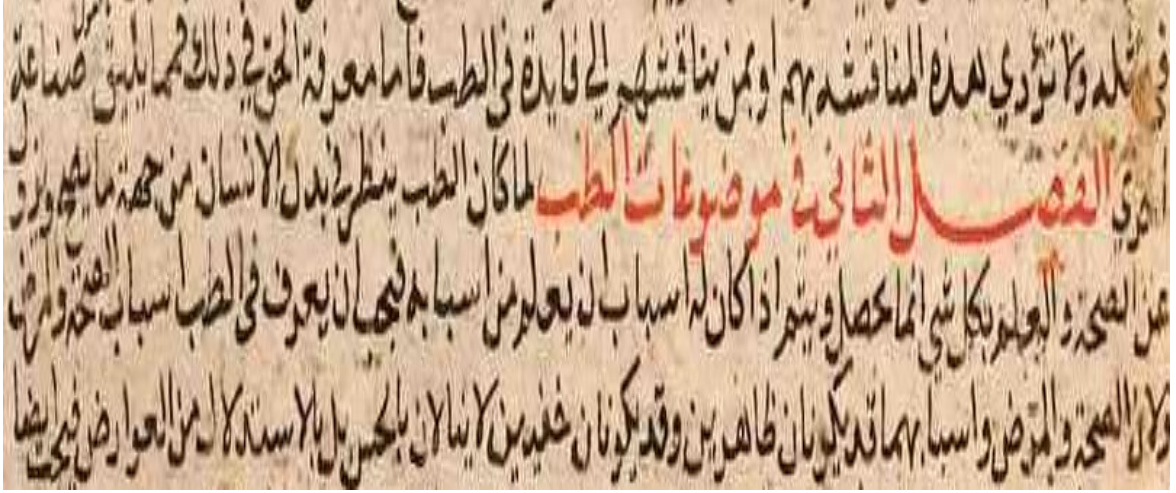 مثله ولا تؤدي هذه المناقشة بهم او بمن يناقشهم الي فايدة في الطب فاما معرفة الحق في ذلك فمما يليق صناعة
اخري الفصل الثاني في موضوعات الطب لما كان الطب ينظر في بدن الانسان من جهة ما يصح ويزول
عن الصحة والعلم بكل شي انما يحصل ويتم اذا كان له اسباب ان يعلم من اسبابه فيجب ان يعرف في الطب اسباب الصحة والمرض
ولان الصحة والمرض واسبابهما قد يكونان ظاهرين وقد يكونان خفيين لا ينالان بالحس بل بالاستدلال من العوارض فيجب ايضا